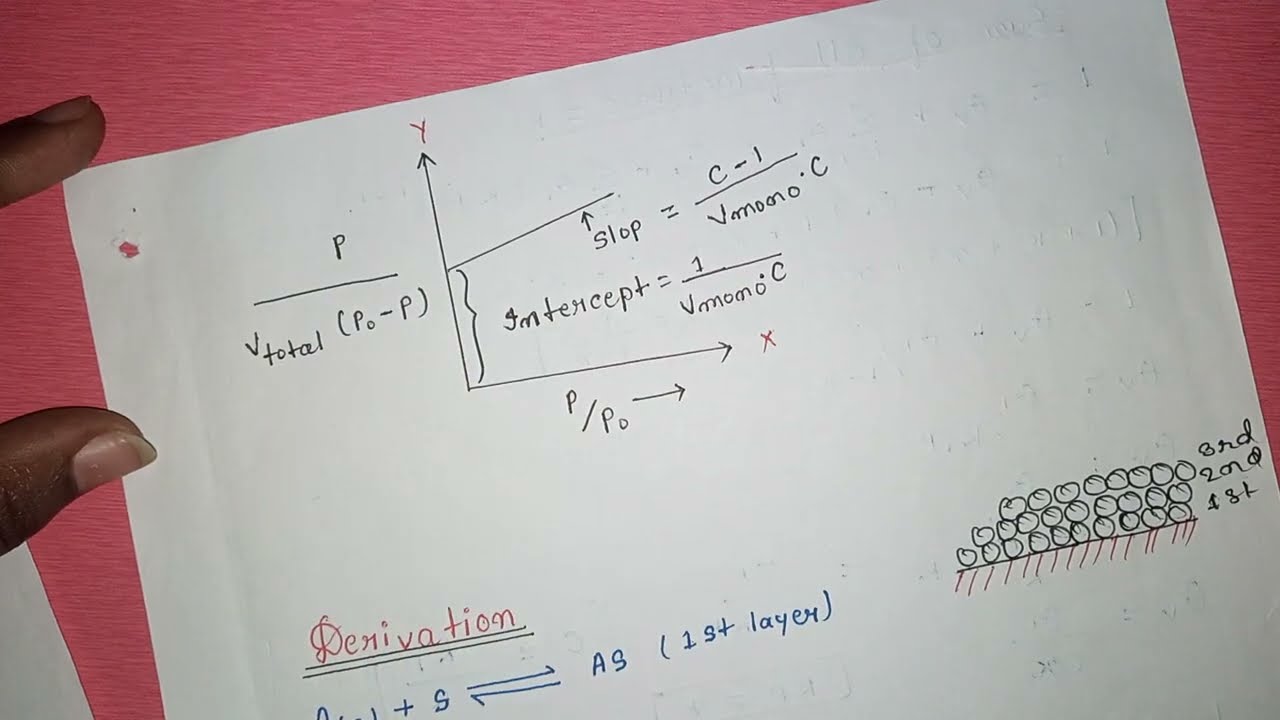 Y
P
Vtotal (P₀-P)
Slop = C-1
Vmono·C
Intercept = 1
Vmono·C
X
P/P₀ →
3rd
2nd
1st
Derivation
+ S ⇌ AS (1st layer)